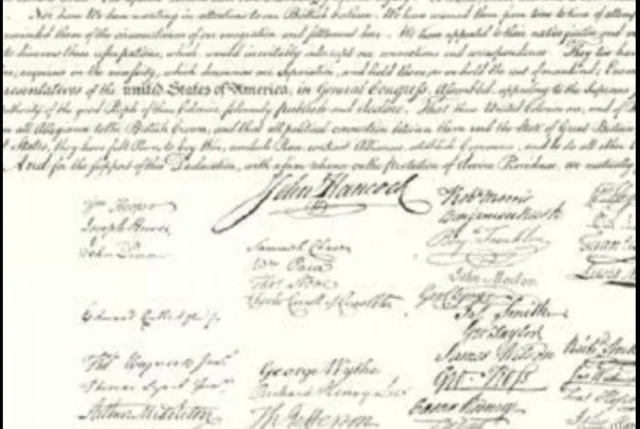 Nor have We been wanting in attentions to our British brethren. We have warned them from time to time of attemp
reminded them of the circumstances of our emigration and settlement here. We have appealed to their native justice and
to disavow these usurpations, which would inevitably interrupt our connections and correspondence. They too hav
acquiesce in the necessity, which denounces our Separation, and hold them, as we hold the rest of mankind, Enem
resentatives of the united States of America, in General Congress, Assembled, appealing to the Supreme
uthority of the good People of these Colonies, solemnly publish and declare, That these United Colonies are, and of
m all Allegiance to the British Crown, and that all political connection between them and the State of Great Britain
t States, they have full Power to levy War, conclude Peace, contract Alliances, establish Commerce, and to do all other
And for the support of this Declaration, with a firm reliance on the Protection of divine Providence, we mutually
John Hancock
Wm Hooper
Joseph Hewes
John Penn
Edward Rutledge
Thos Heyward Junr
Thomas Lynch Junr
Arthur Middleton
Samuel Chase
Wm Paca
Thos Stone
Charles Carroll of Carrollton
George Wythe
Richard Henry Lee
Th Jefferson
Robt Morris
Benjamin Rush
Benj Franklin
John Morton
Geo Clymer
Jas Smith
Geo Taylor
James Wilson
Geo Ross
Caesar Rodney